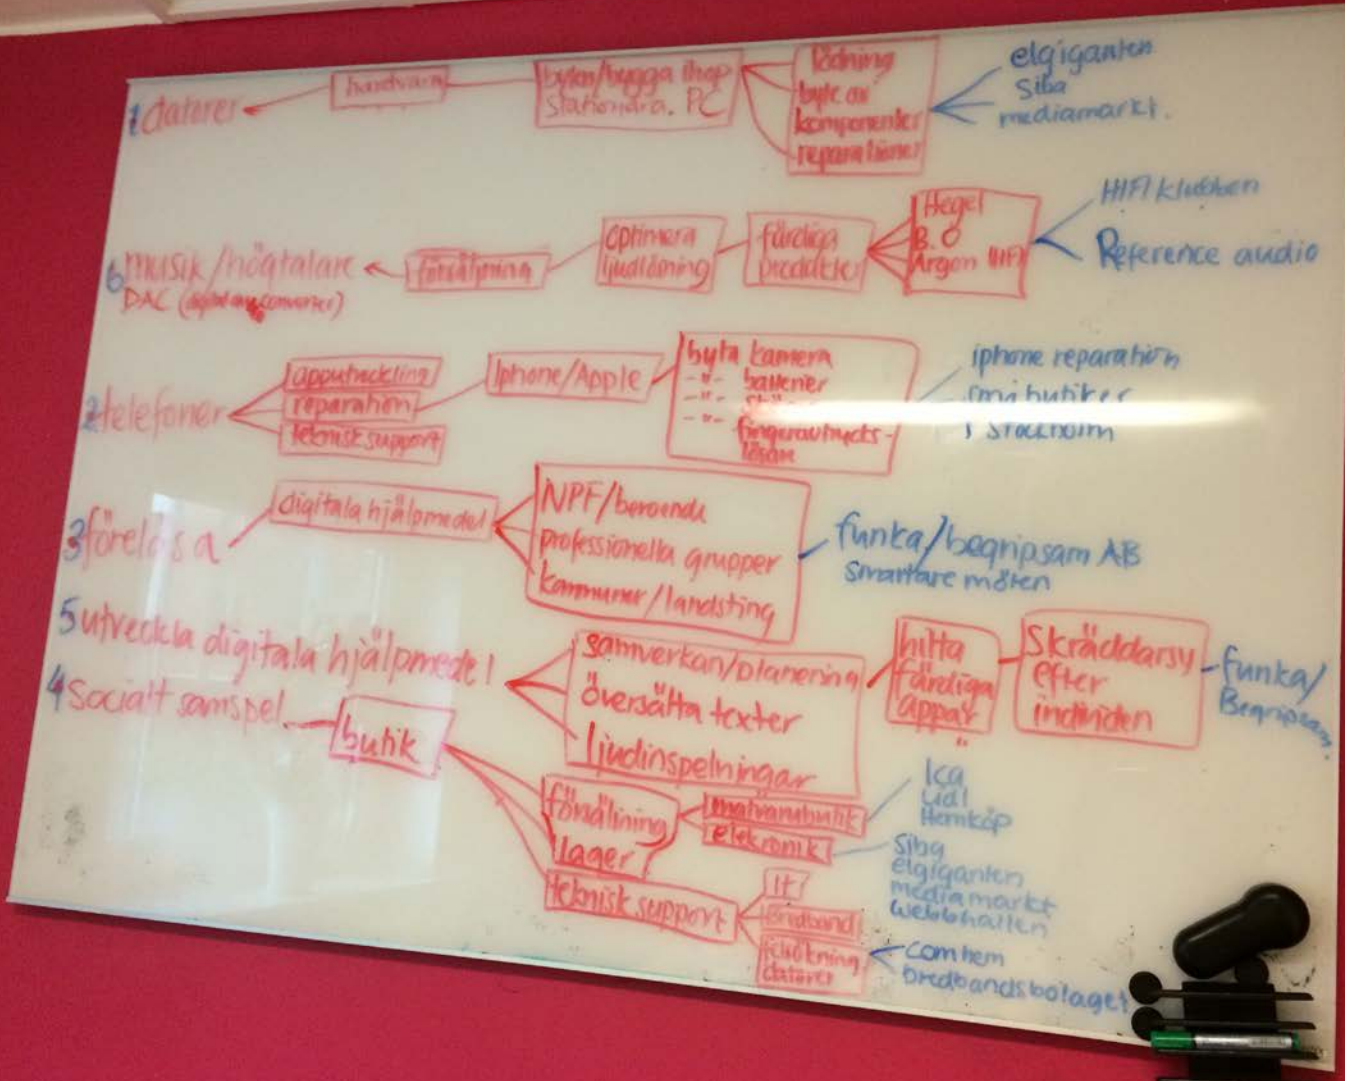 1 datorer
hårdvara
byta/bygga ihop
stationära. PC
lödning
byte av
komponenter
reparationer
elgiganten
Siba
mediamarkt.
6 musik/högtalare
DAC (digital converter)
försäljning
optimera
ljudlösning
färdiga
produkter
Hegel
B.O
Argon HIFI
HIFI klubben
Reference audio
2 telefoner
apputveckling
reparation
teknisk support
Iphone/Apple
byta kamera
-"- batterier
-"-
-"- fingeravtrycks-
läsare
iphone reparation
små butiker
i Stockholm
3 föreläsa
digitala hjälpmedel
NPF/beroende
professionella grupper
kommuner/landsting
funka/begripsam AB
Smartare möten
5 utveckla digitala hjälpmedel
samverkan/planering
översätta texter
ljudinspelningar
hitta
färdiga
appar
Skräddarsy
efter
individen
funka/
Begripsam.
4 Socialt samspel
butik
försäljning
lager
matvarubutik
elektronik
Ica
Lidl
Hemköp
Siba
elgiganten
mediamarkt
webbhallen
teknisk support
IT
Bredband
felsökning
datorer
comhem
bredbandsbolaget